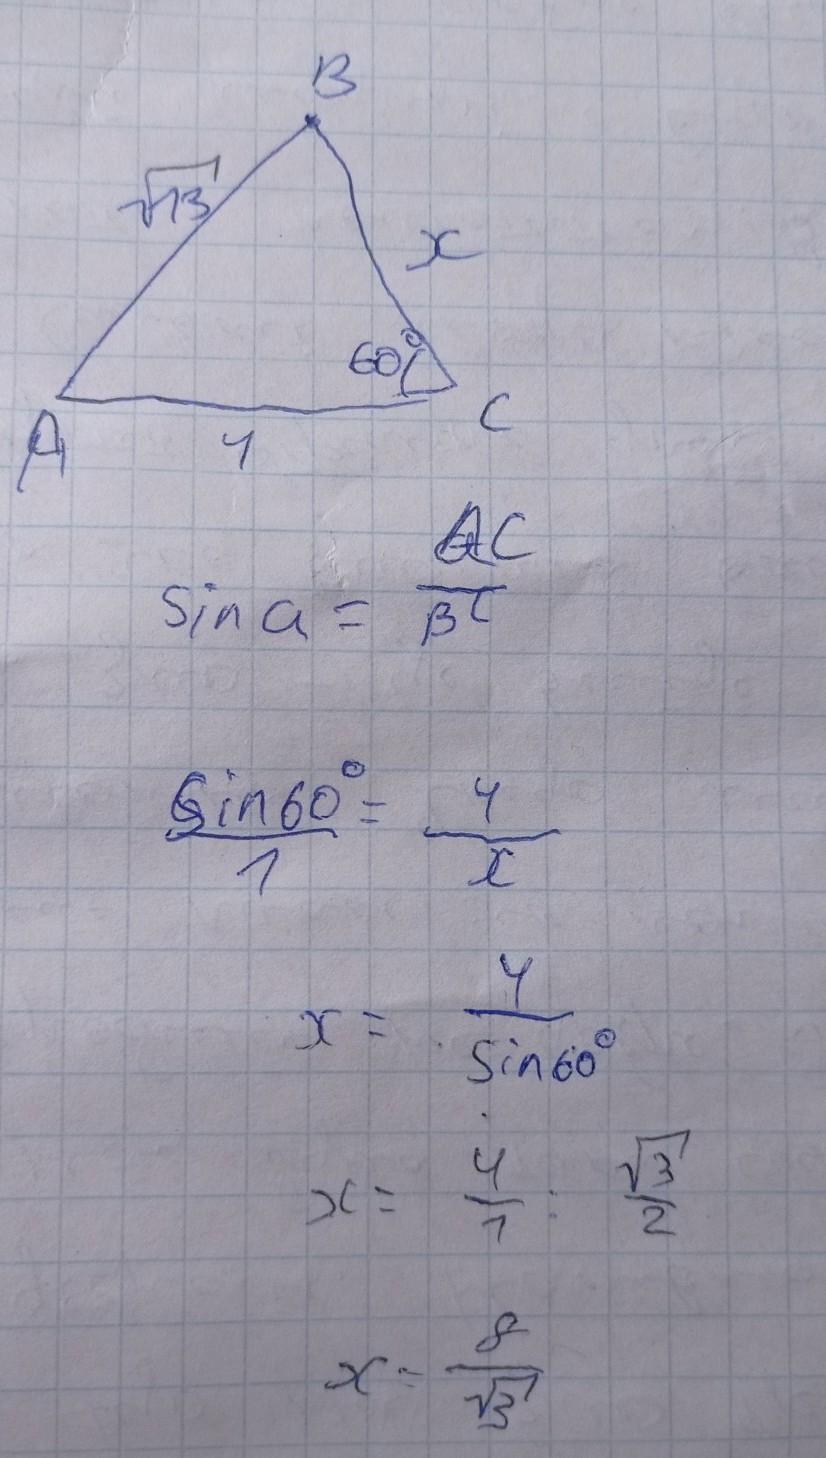 B
√13
x
60°
A
4
C
sin a = AC/BC
sin60°/1 = 4/x
x = 4/sin60°
x = 4/1 : √3/2
x = 8/√3